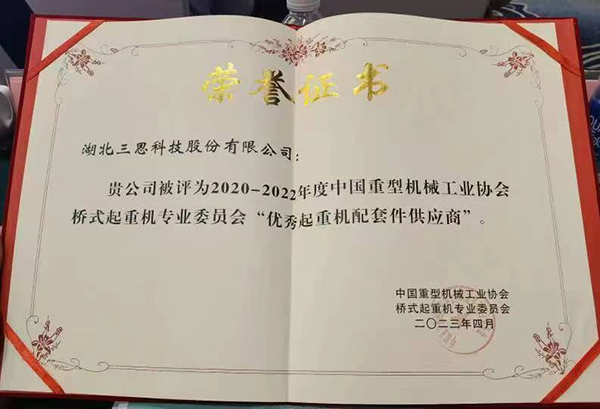 荣誉证书
湖北三思科技股份有限公司：
贵公司被评为2020-2022年度中国重型机械工业协会
桥式起重机专业委员会“优秀起重机配套件供应商”。
中国重型机械工业协会
桥式起重机专业委员会
二〇二三年四月